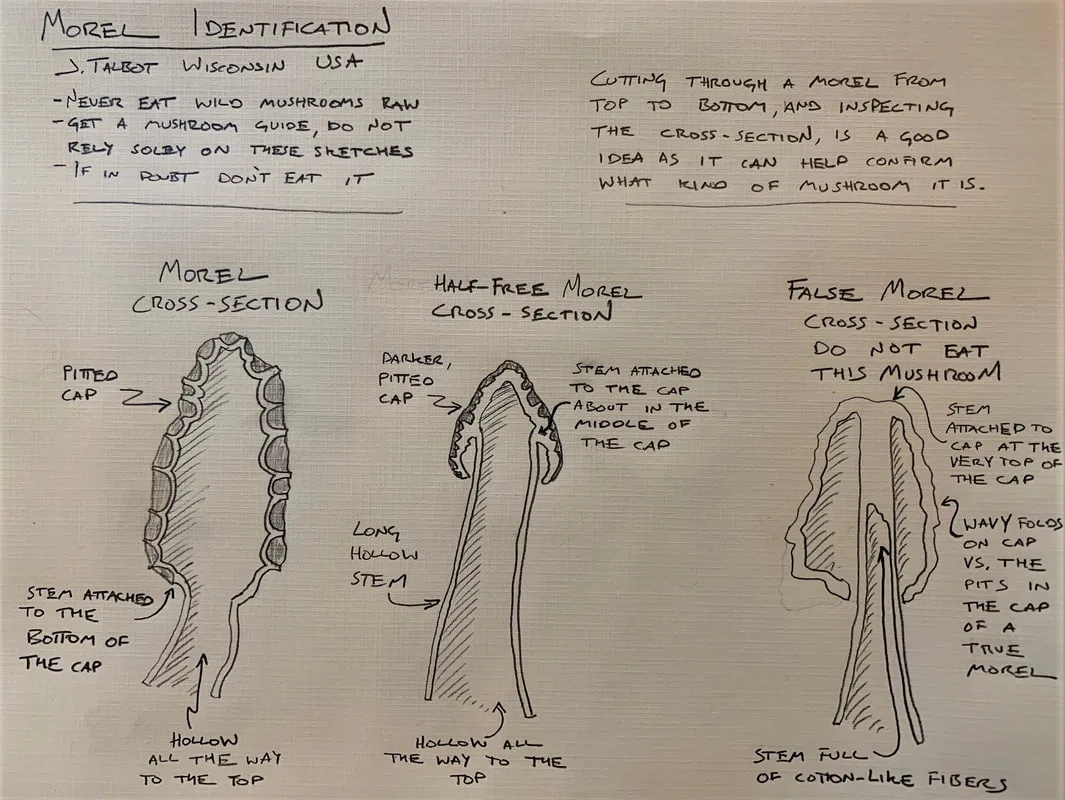 MOREL IDENTIFICATION
J. TALBOT WISCONSIN USA
- NEVER EAT WILD MUSHROOMS RAW
- GET A MUSHROOM GUIDE, DO NOT
RELY SOLEY ON THESE SKETCHES
- IF IN DOUBT DON'T EAT IT
CUTTING THROUGH A MOREL FROM
TOP TO BOTTOM, AND INSPECTING
THE CROSS-SECTION, IS A GOOD
IDEA AS IT CAN HELP CONFIRM
WHAT KIND OF MUSHROOM IT IS.
MOREL
CROSS-SECTION
PITTED
CAP
STEM ATTACHED
TO THE
BOTTOM OF
THE CAP
HOLLOW
ALL THE WAY
TO THE TOP
HALF-FREE MOREL
CROSS-SECTION
DARKER,
PITTED
CAP
STEM ATTACHED
TO THE CAP
ABOUT IN THE
MIDDLE OF
THE CAP
LONG
HOLLOW
STEM
HOLLOW ALL
THE WAY TO THE
TOP
FALSE MOREL
CROSS-SECTION
DO NOT EAT
THIS MUSHROOM
STEM
ATTACHED TO
CAP AT THE
VERY TOP OF
THE CAP
WAVY FOLDS
ON CAP
VS. THE
PITS IN
THE CAP
OF A
TRUE
MOREL
STEM FULL
OF COTTON-LIKE FIBERS